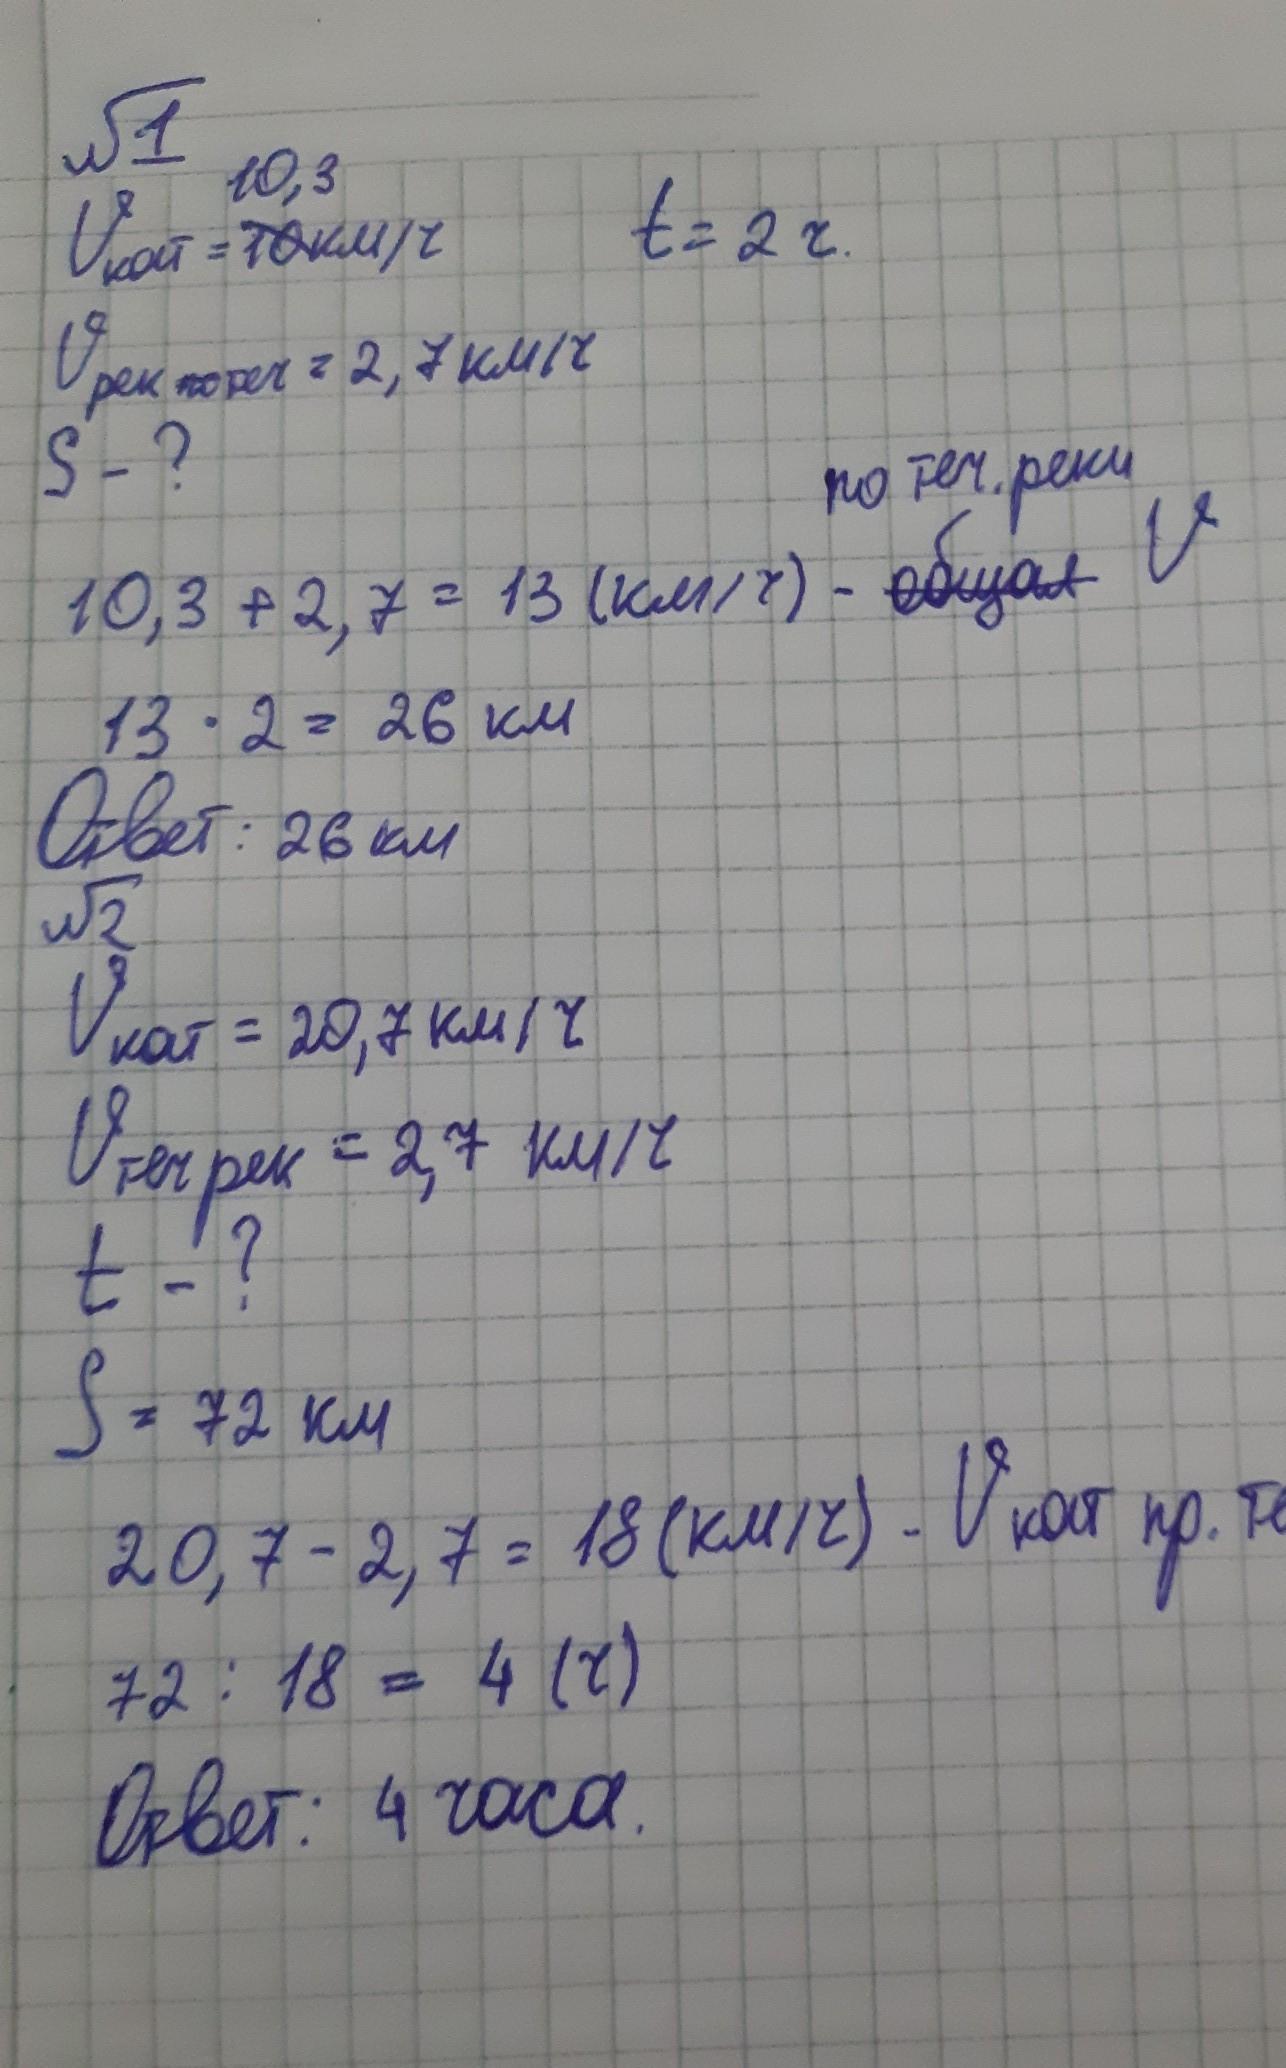 №1
10,3
Vкат = 10км/ч t = 2 ч.
Vрек по теч = 2,7 км/ч
S - ?
по теч. реки
10,3 + 2,7 = 13 (км/ч) - общая V
13 · 2 = 26 км
Ответ: 26 км
№2
Vкат = 20,7 км/ч
Vтеч рек = 2,7 км/ч
t - ?
S = 72 км
20,7 - 2,7 = 18 (км/ч) - Vкат пр. те
72 : 18 = 4 (ч)
Ответ: 4 часа.